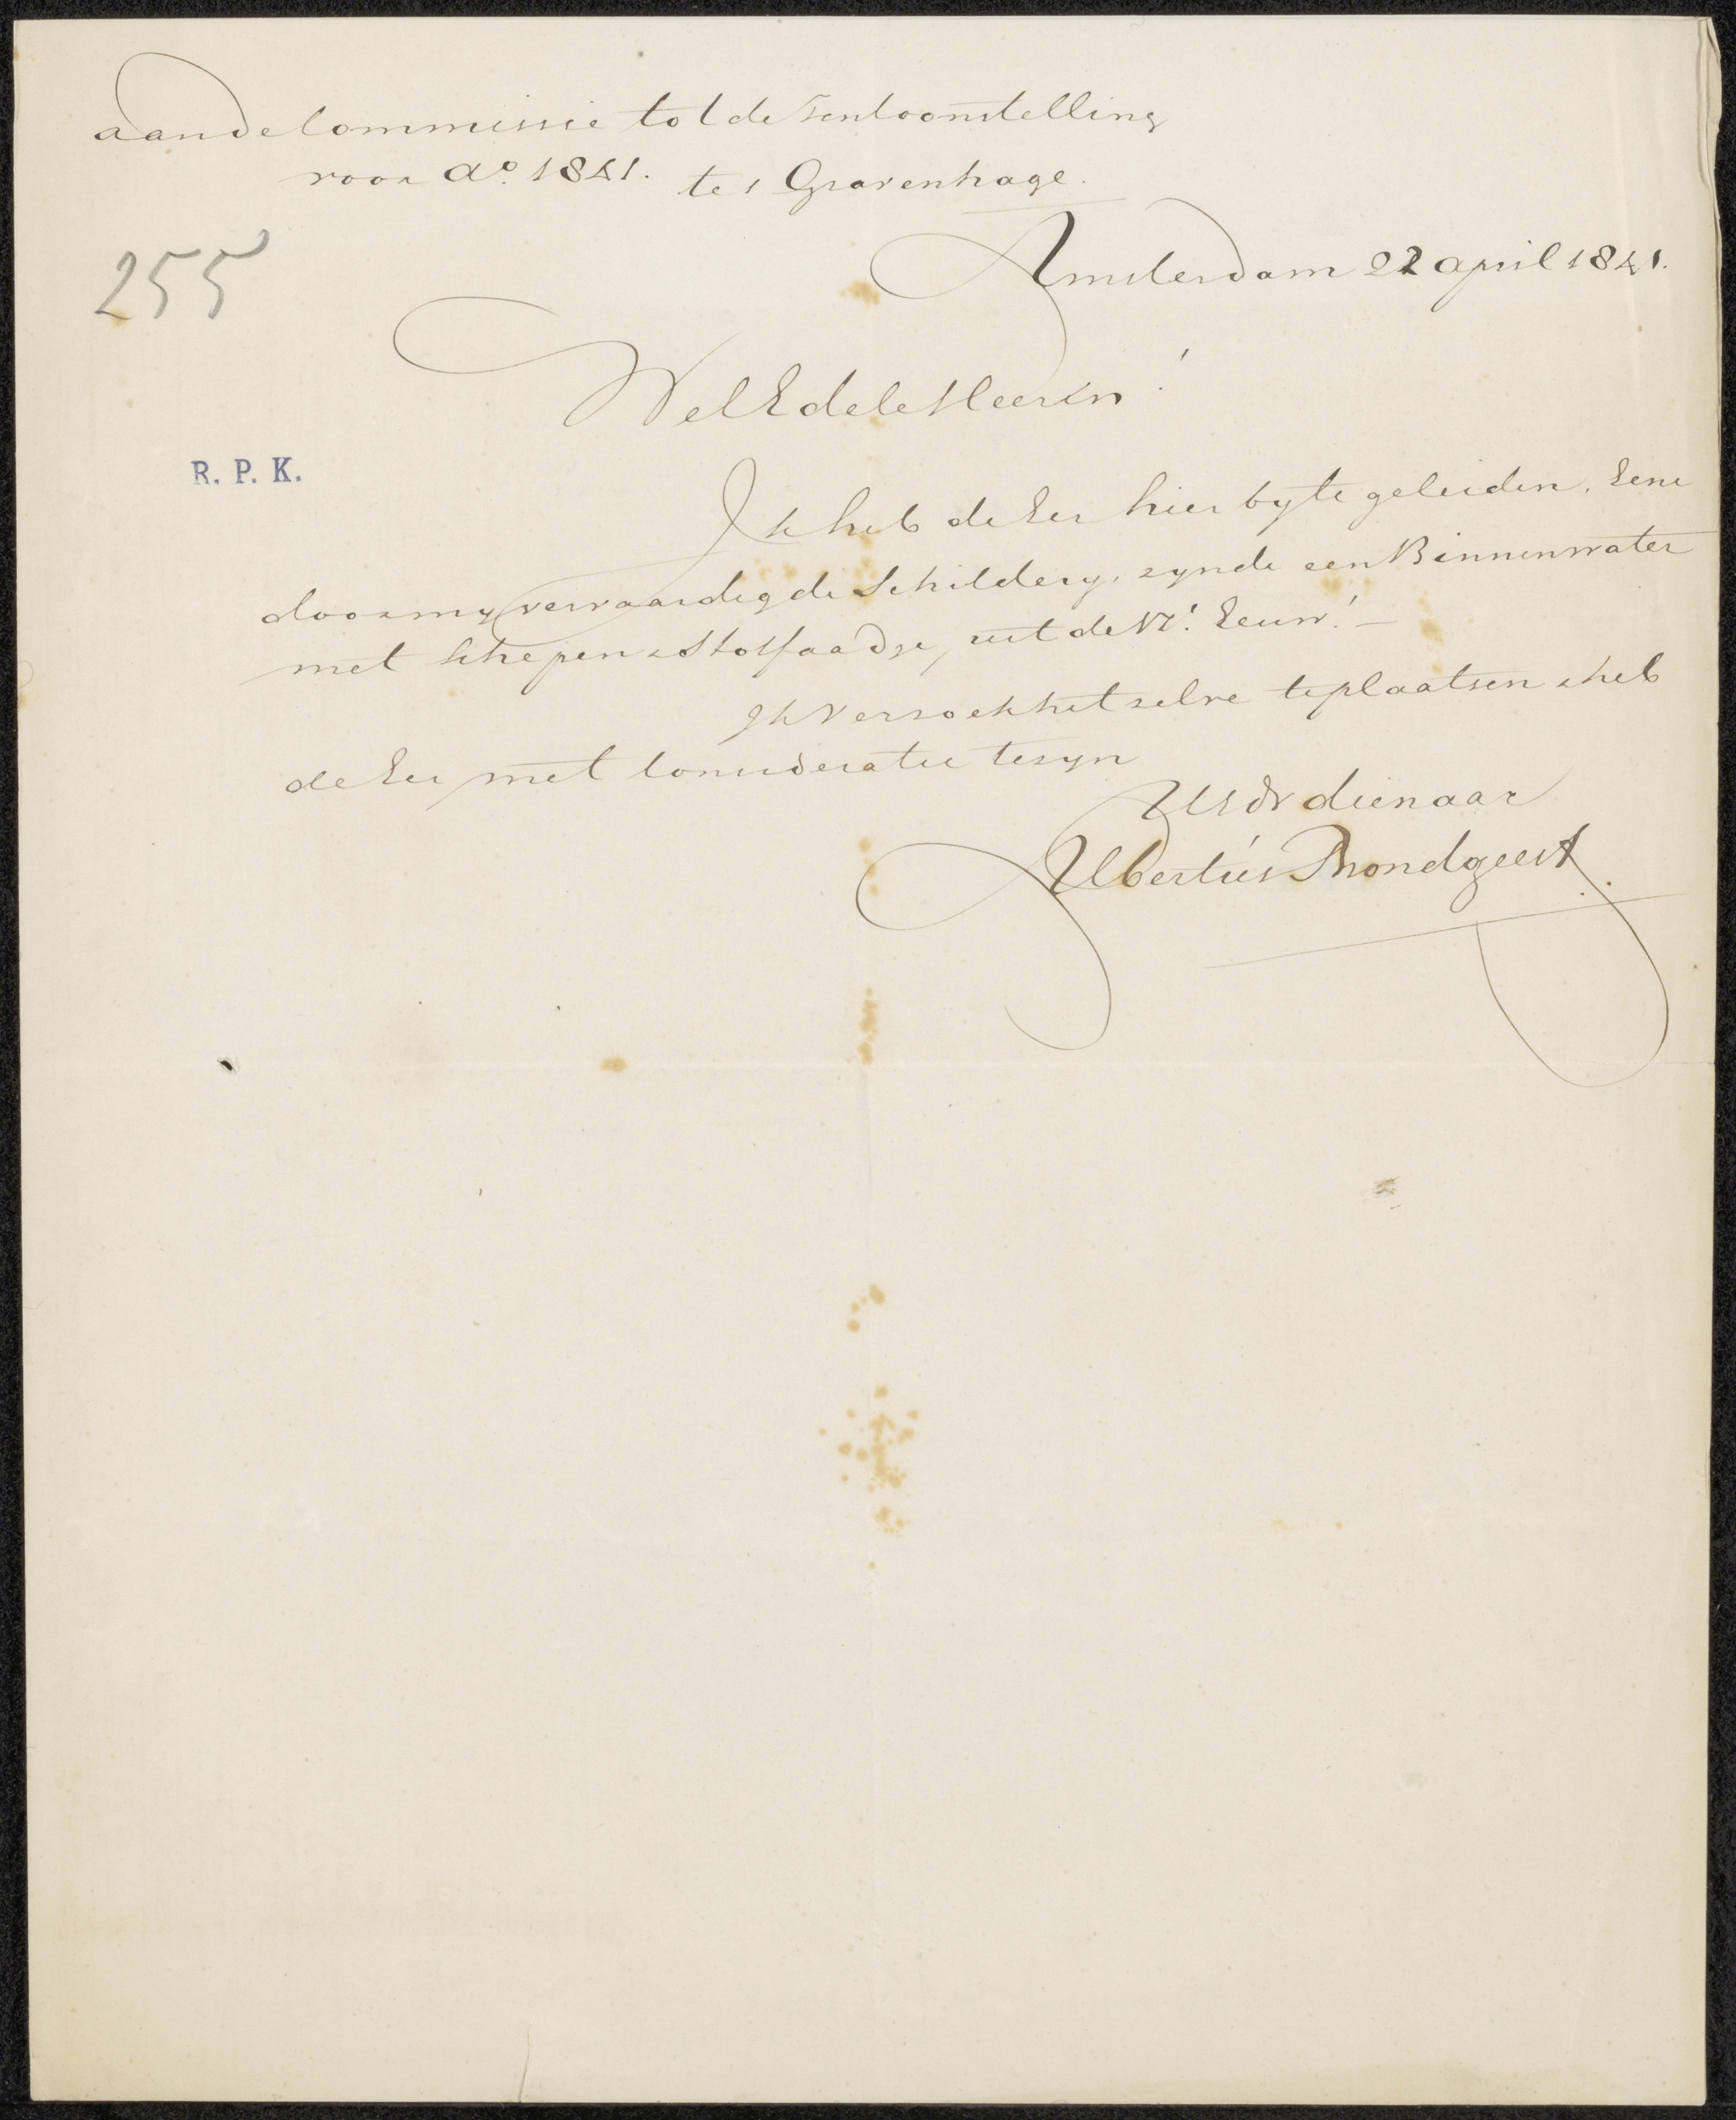 aan de Commissie tot de Tentoonstelling
voor Ao. 1841. te s Gravenhage.
Amsterdam 22 april 1841.
255
Wel Edele Heeren!
R. P. K.
Ik heb de Eer hier by te geleiden. Eene
door my vervaardigde Schildery, zynde een Binnenwater
met schepen & Stoffaadje, uit de 17e Eeuw! —
Ik versoek het selve te plaatsen & heb
de Eer met Consideratie te syn
dienaar
Albertus Brondgeest